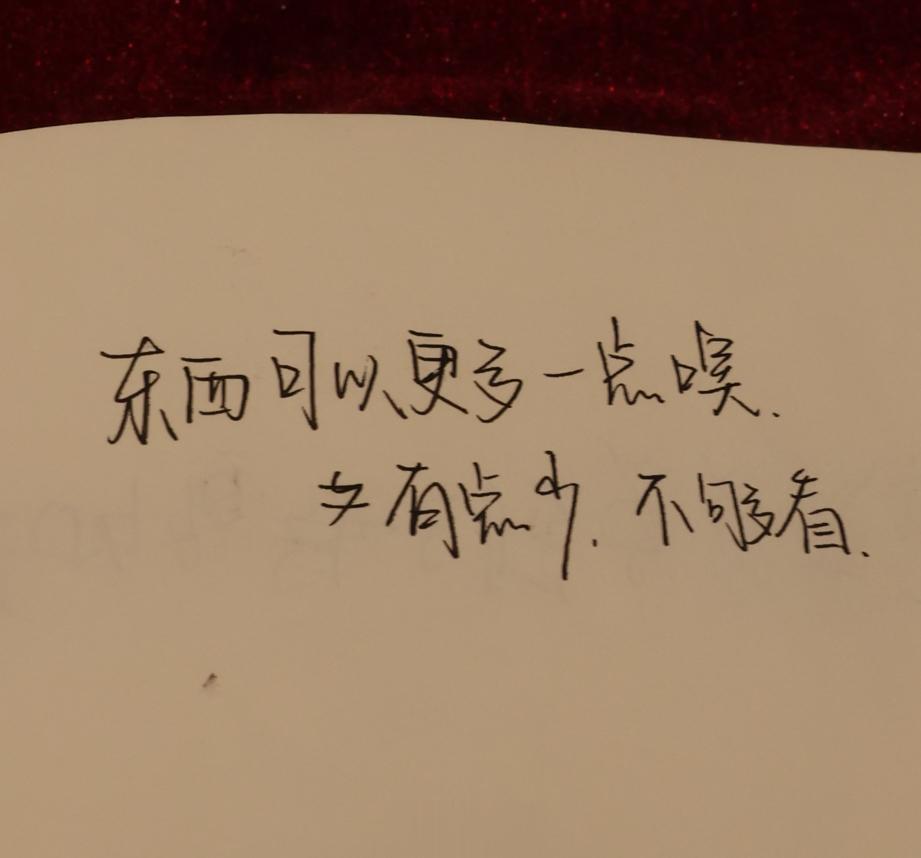 东西可以更多一点唉.
有点少. 不够看.